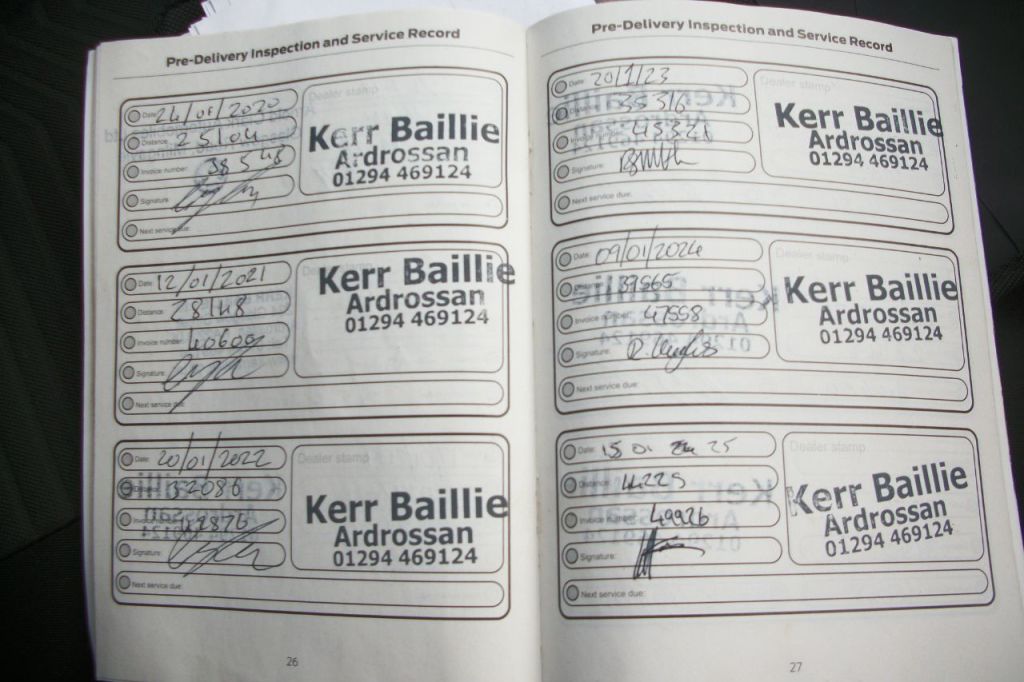 Pre-Delivery Inspection and Service Record
Date: 24/01/2020
Distance: 25104
Invoice number: 38548
Signature:
Next service due:
Dealer stamp
Kerr Baillie
Ardrossan
01294 469124
Date: 12/01/2021
Distance: 28148
Invoice number: 40609
Signature:
Next service due:
Kerr Baillie
Ardrossan
01294 469124
Date: 20/01/2022
Distance: 32086
Invoice number: 42876
Signature:
Next service due:
Dealer stamp
Kerr Baillie
Ardrossan
01294 469124
26
Pre-Delivery Inspection and Service Record
Date: 20/1/23
35316
45321
Signature:
Next service due:
Dealer stamp
Kerr Baillie
Ardrossan
01294 469124
Date: 09/01/2024
Distance: 37565
Invoice number: 47558
Signature:
Next service due:
Dealer stamp
Kerr Baillie
Ardrossan
01294 469124
Date: 15 01 25
Distance: 4225
Invoice number: 49926
Signature:
Next service due:
Dealer stamp
Kerr Baillie
Ardrossan
01294 469124
27